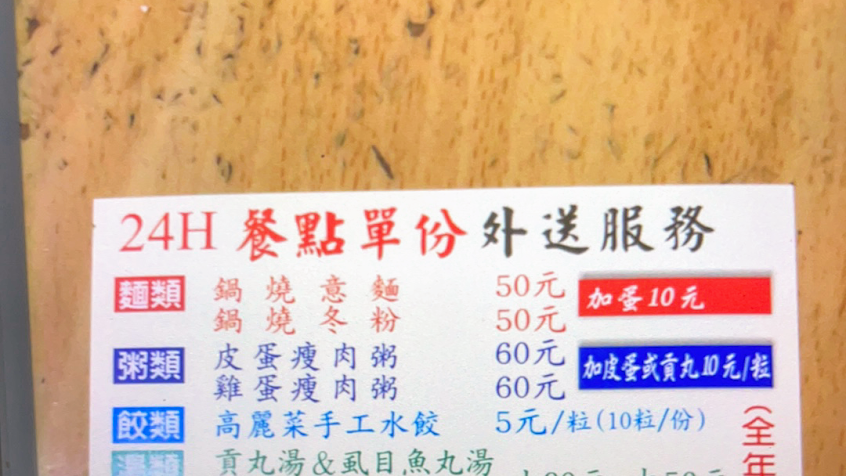 24H 餐點單份 外送服務
麵類 鍋燒意麵 50元 加蛋10元
鍋燒冬粉 50元
粥類 皮蛋瘦肉粥 60元 加皮蛋或貢丸10元/粒
雞蛋瘦肉粥 60元
餃類 高麗菜手工水餃 5元/粒(10粒/份)
貢丸湯&虱目魚丸湯
(全年